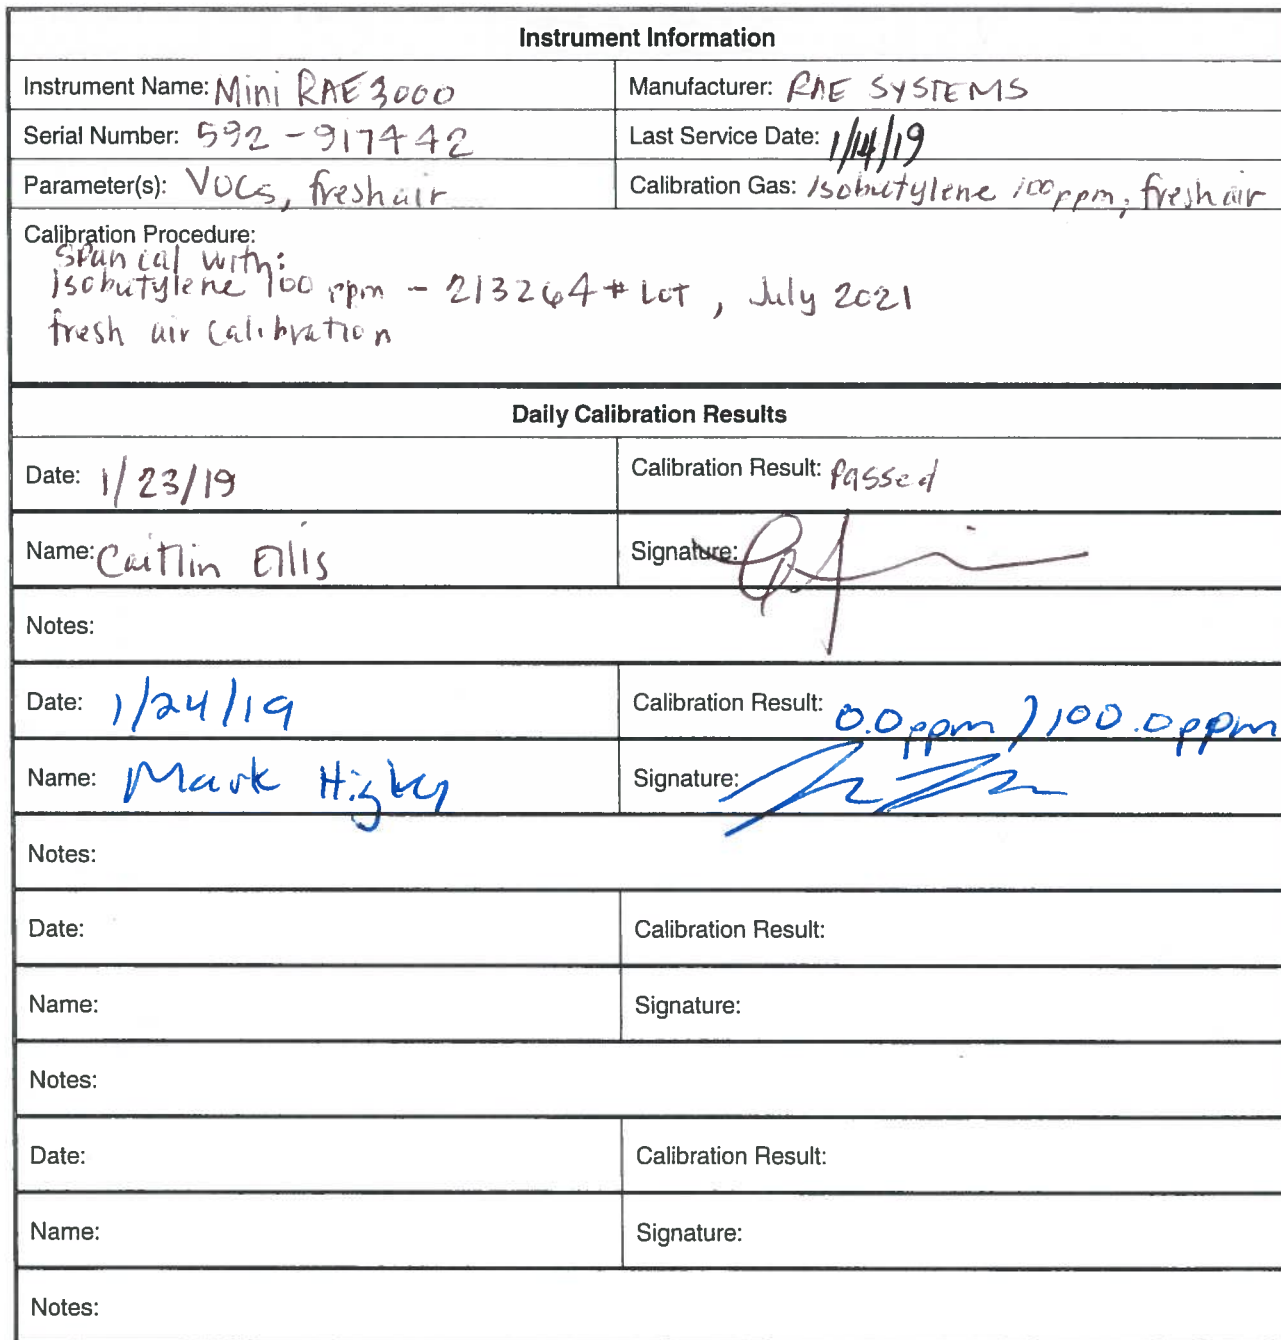 Instrument Information
Instrument Name: Mini RAE 3000 Manufacturer: RAE SYSTEMS
Serial Number: 592-917442 Last Service Date: 1/14/19
Parameter(s): VOCs, fresh air Calibration Gas: Isobutylene 100 ppm, fresh air
Calibration Procedure:
Span cal with:
Isobutylene 100 ppm - 213264 # Lot, July 2021
fresh air calibration
Daily Calibration Results
Date: 1/23/19 Calibration Result: Passed
Name: Caitlin Ellis Signature:
Notes:
Date: 1/24/19 Calibration Result: 0.0ppm / 100.0ppm
Name: Mark Signature:
Notes:
Date: Calibration Result:
Name: Signature:
Notes:
Date: Calibration Result:
Name: Signature:
Notes: